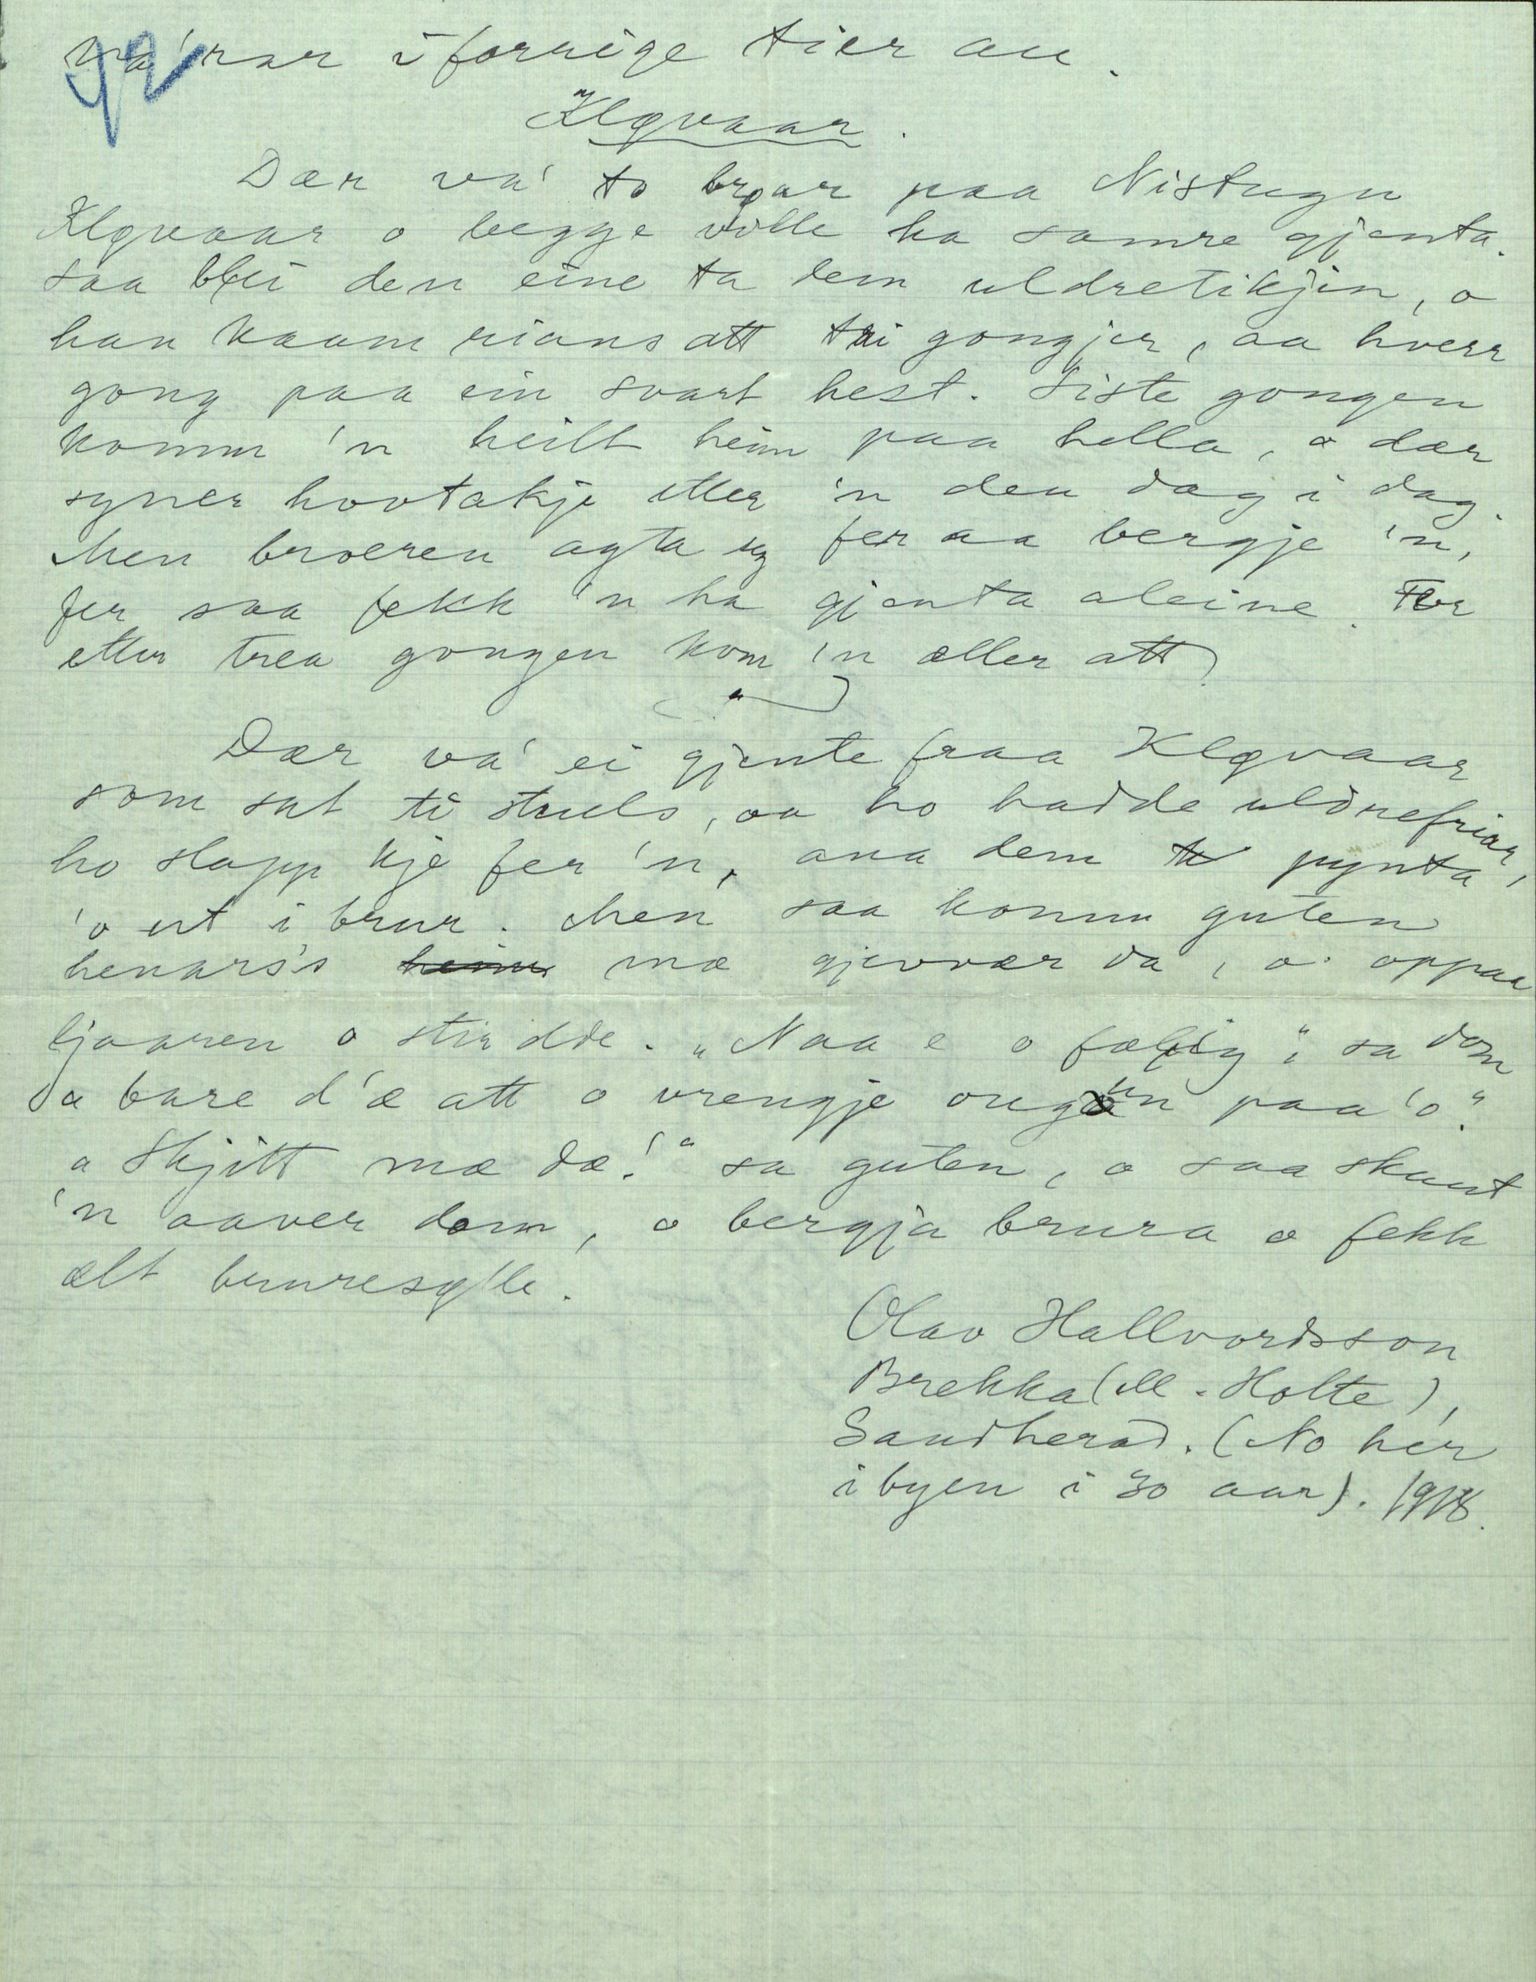 92
va' rar i forrige tier au.
Kløvaar.
Dær va' to brøar paa Nistugu
Kløvaar o begge ville ha samre gjenta.
saa blei den eine ta dem uldretikjin, o
han kaam rians att tri gongjer, aa hverr
gong paa ein svart hest. Siste gongen
komm 'n heilt heim paa hella, o dær
syner hovtakje etter 'n den dag i dag.
Men broeren agta seg fer aa bergje 'n,
fer saa fekk 'n ha gjenta aleine. For
etter trea gongen kom 'n aller att.
Dær va' ei gjente fraa Kløvaar
som sat ti stuls, oa ho hadde uldrefriar,
ho slapp kje fer 'n, ana dem pynta
'o ut i brur. Men saa komm guten
henars's heim mæ gjevær da, o oppaa
ljaaren o stirdde. „Naa e o fælig“, sa dom
„o bare d'æ att o vrengje ougun paa 'o.“
„Skjitt mæ dæ!“ sa guten, o saa skaut
'n aaver dom, o bergja brura o fekk
alt bruresølle.
Olav Hallvordsson
Brekka (M. Holte),
Sandherad. (No her
i byen i 30 aar). 1918.